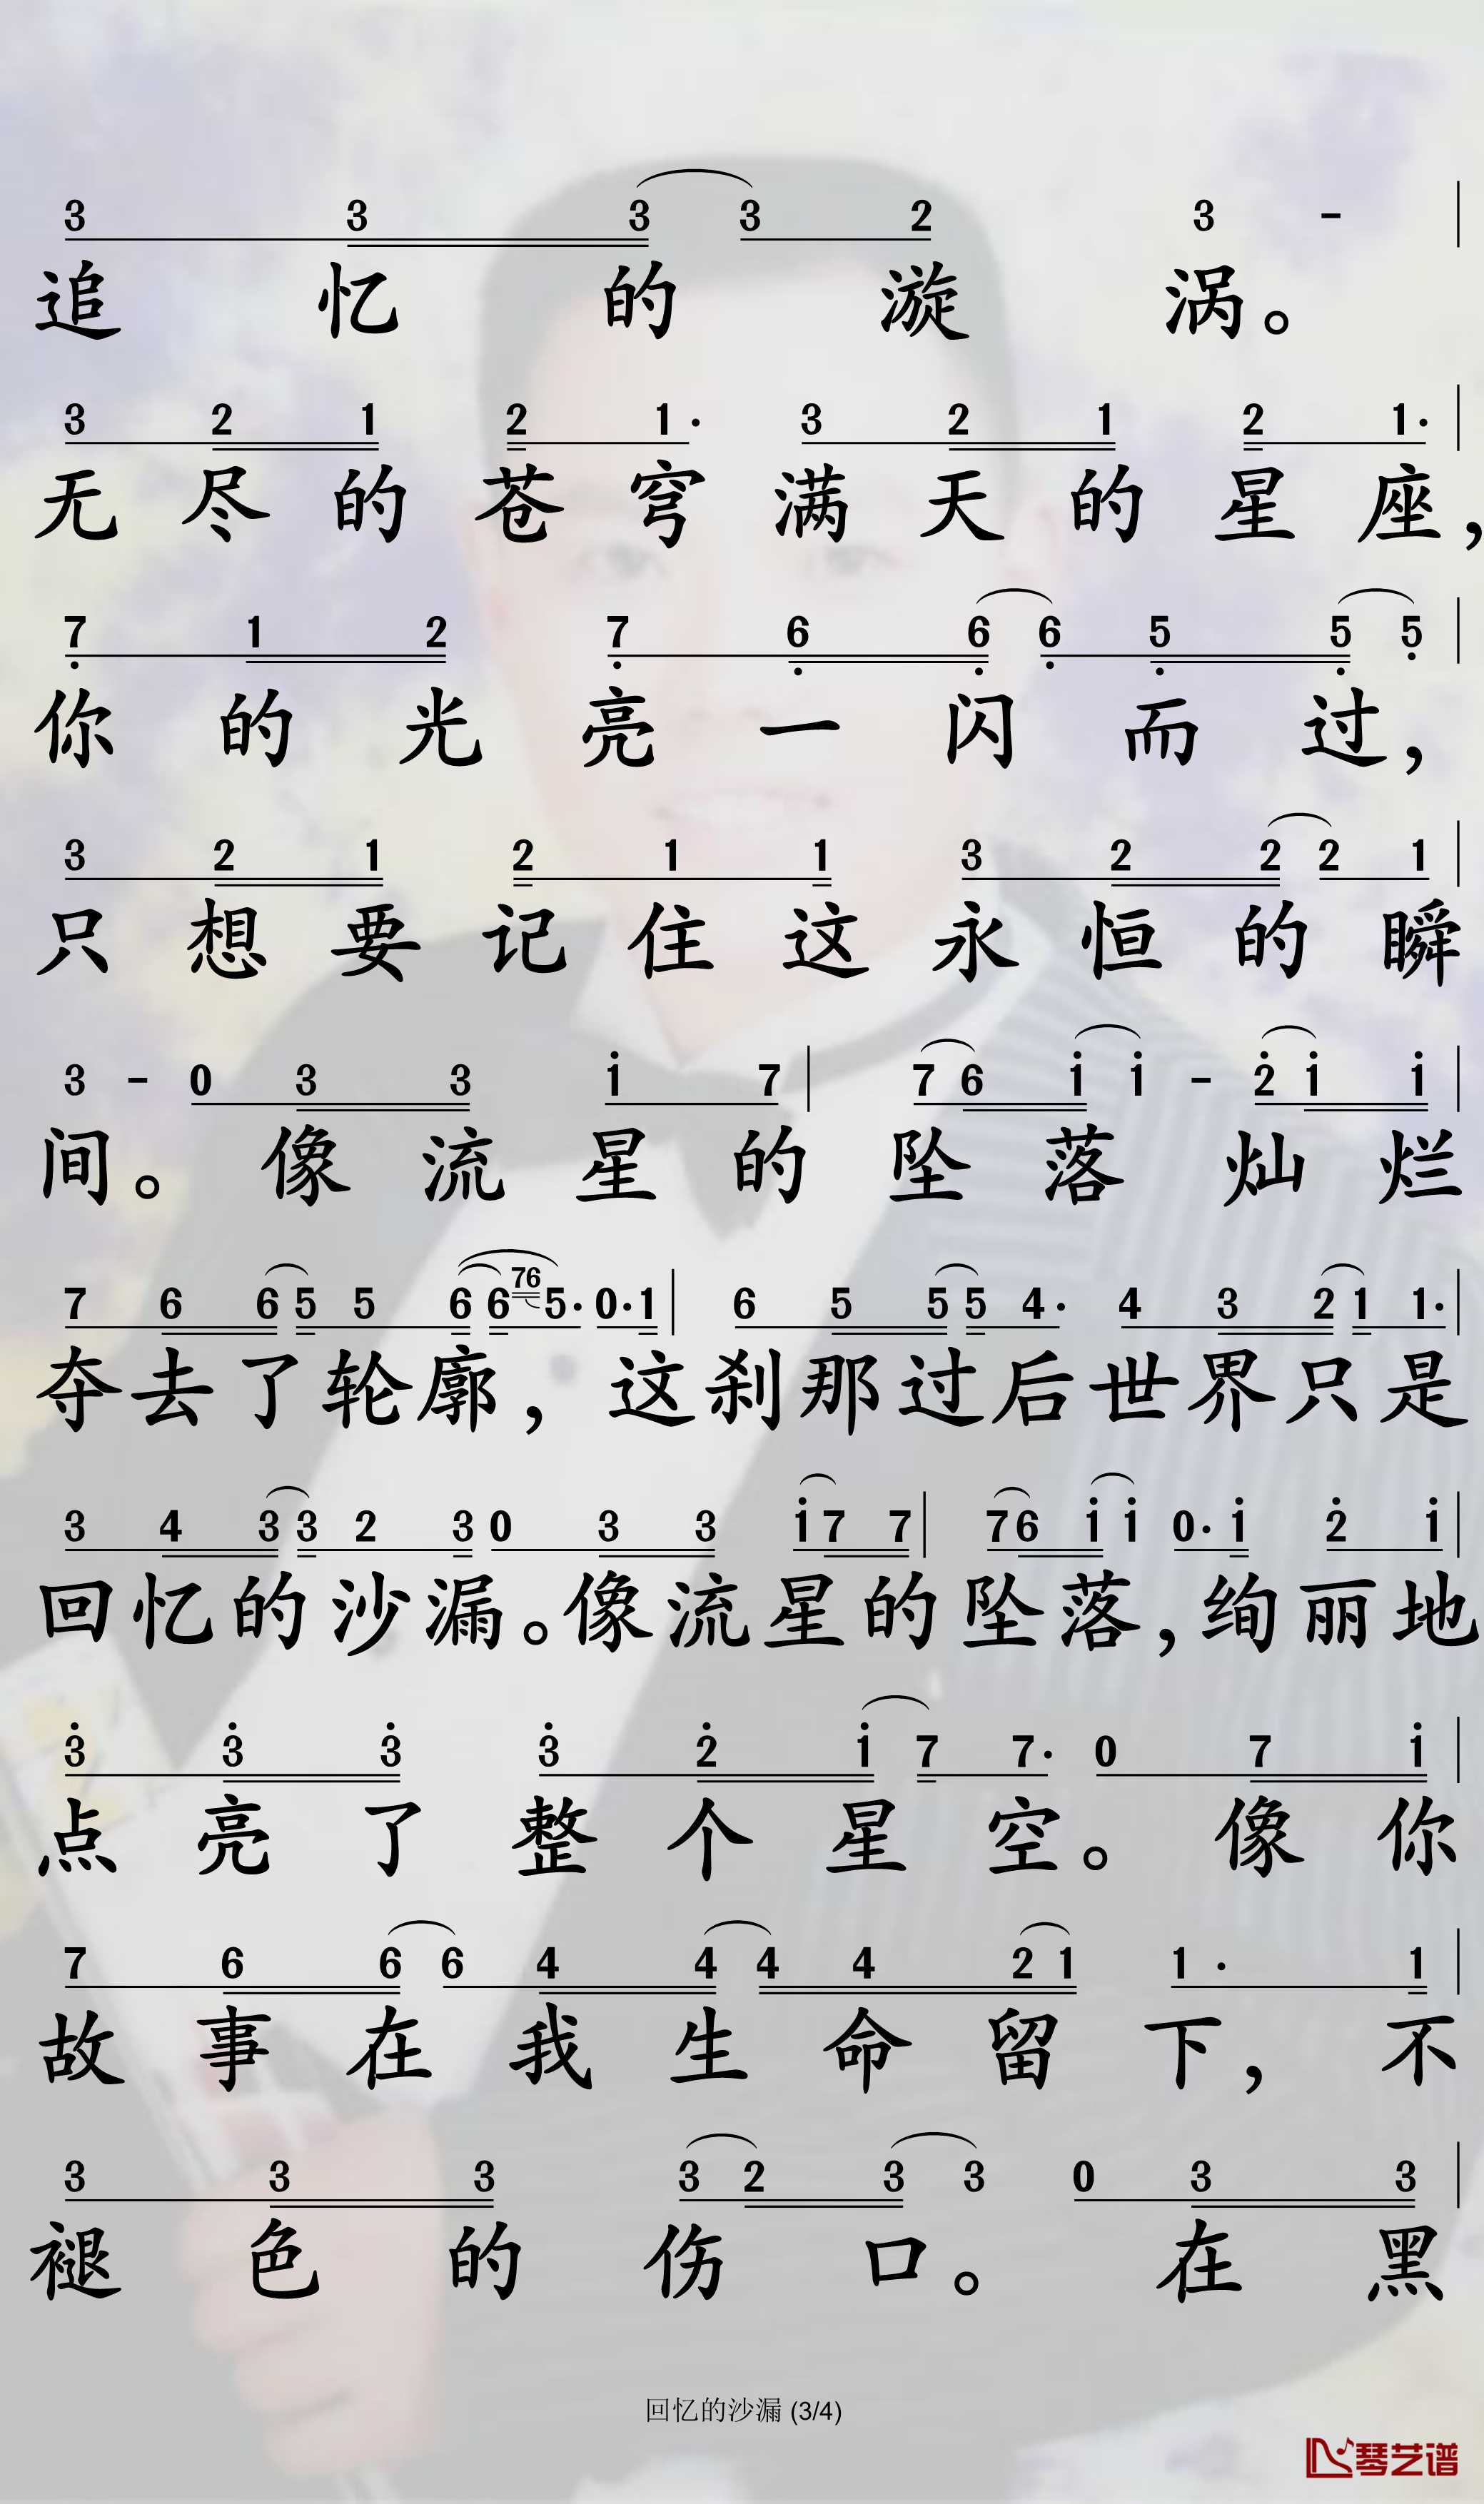 3 3 3 3 2 3 - |
追忆的漩涡。
3 2 1 2 1· 3 2 1 2 1· |
无尽的苍穹满天的星座,
7 1 2 7 6 6 6 5 5 5 |
你的光亮一闪而过,
3 2 1 2 1 1 3 2 2 2 1 |
只想要记住这永恒的瞬
3 - 0 3 3 1 7 | 7 6 1 1 - 2 1 1 |
间。像流星的坠落灿烂
7 6 6 5 5 6 6 76 5· 0· 1 | 6 5 5 5 4· 4 3 2 1 1· |
夺去了轮廓,这刹那过后世界只是
3 4 3 3 2 3 0 3 3 1 7 7 | 7 6 1 1 0· 1 2 1 |
回忆的沙漏。像流星的坠落,绚丽地
3 3 3 3 2 1 7 7· 0 7 1 |
点亮了整个星空。像你
7 6 6 6 4 4 4 4 2 1 1· 1 |
故事在我生命留下,不
3 3 3 3 2 3 3 0 3 3 |
褪色的伤口。在黑
回忆的沙漏 (3/4)
琴艺谱